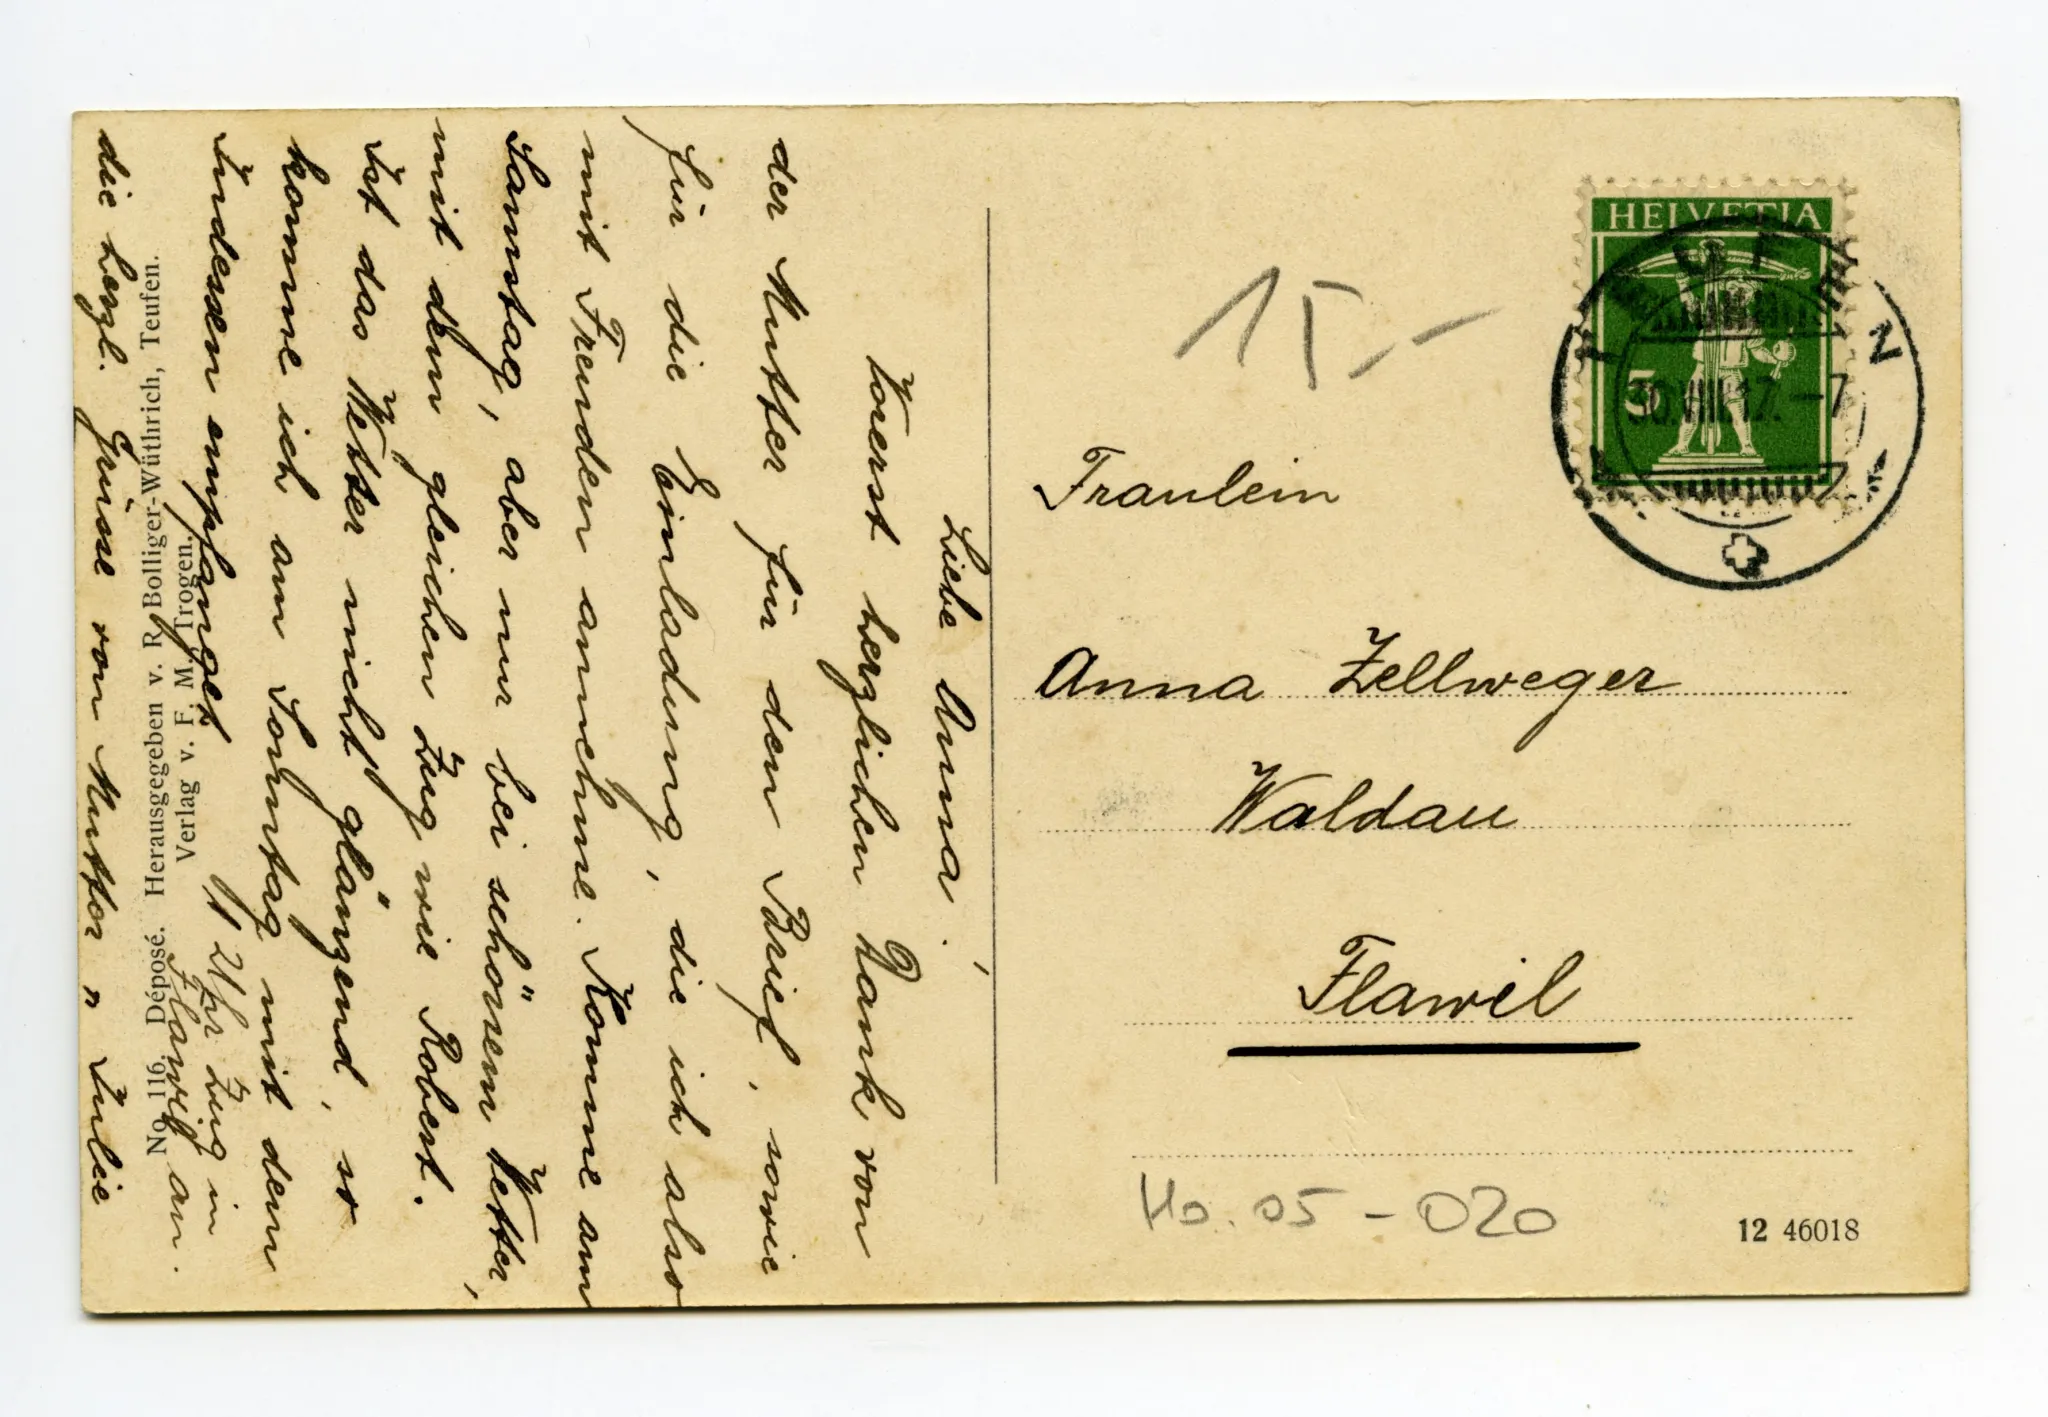 Liebe Anna!
Vorerst herzlichen Dank von
der Mutter für den Brief, sowie
für die Einladung, die ich also
mit Freuden annehme. Komme am
Samstag, aber nur bei schönem Wetter,
mit dem gleichen Zug wie Robert.
Ist das Wetter nicht glänzend, so
komme ich am Sonntag mit dem
1 Uhr Zug in
Flawil an.
Indessen empfanget
die herzl. Grüsse von Mutter n Julie
No 116. Déposé. Herausgegeben v. R. Bolliger-Wüthrich, Teufen.
Verlag v. F. M. Trogen.
HELVETIA
5
TEUFEN
30.VIII.17.–7
15.-
Fraulein
Anna Zellweger
Waldau
Flawil
Ho. 05-020
12 46018